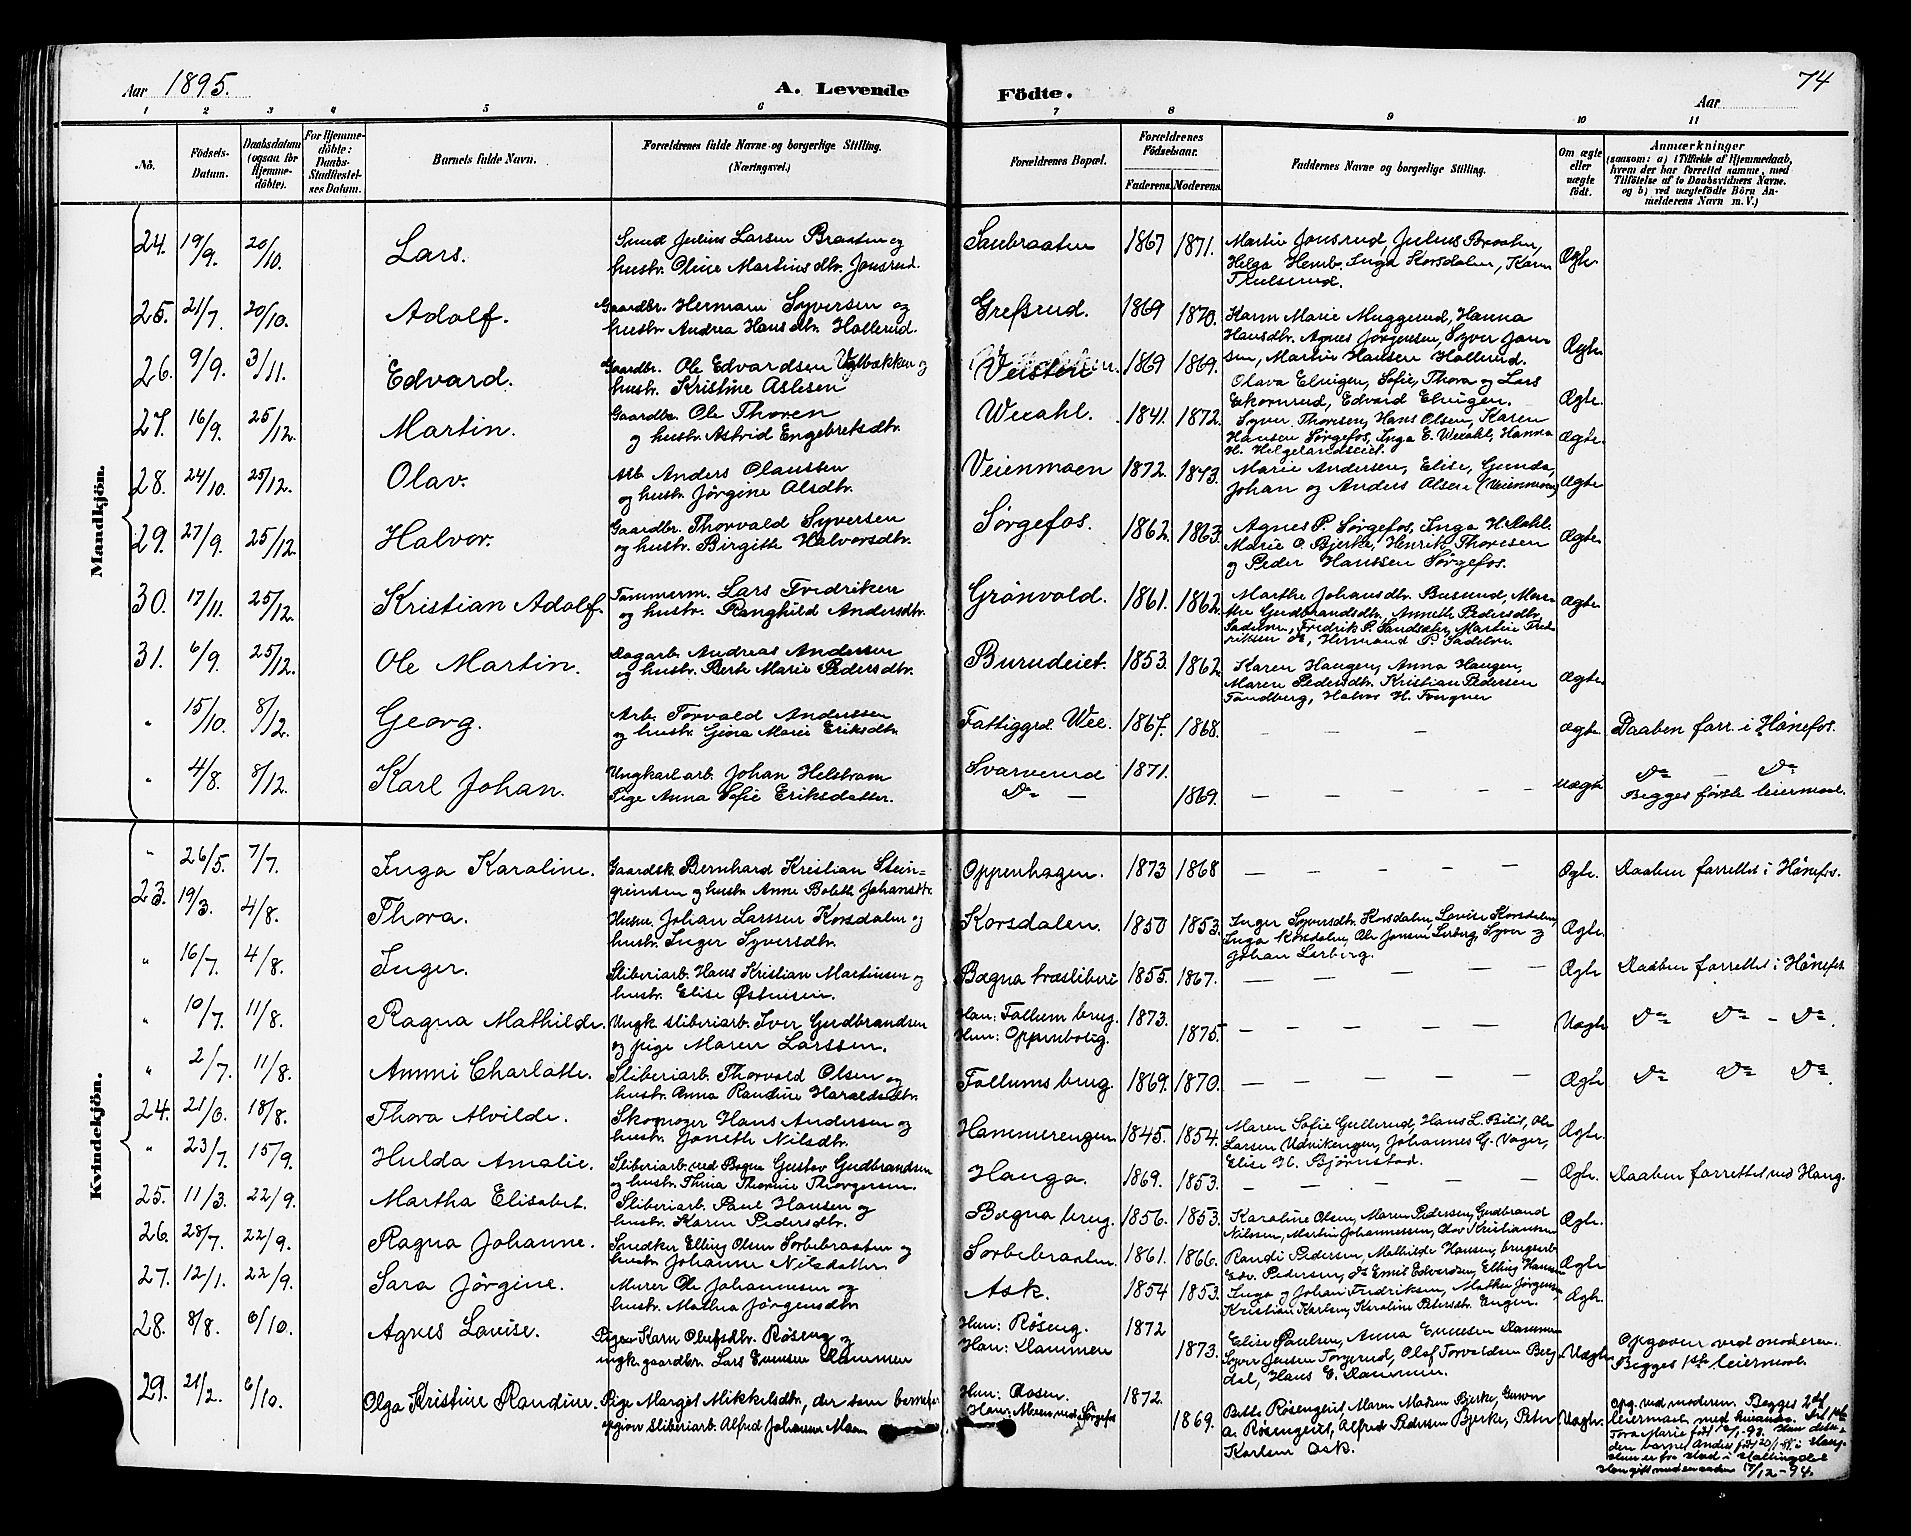 Aar 1895.
A. Levende
Födte.
74
Aar
1 2 3 4 5 6 7 8 9 10 11
No.
Födsels-Datum.
Daabsdatum (ogsaa for Hjemme-döbte).
For Hjemme-döbte: Daabs-Stadfæstel-ses Datum.
Barnets fulde Navn.
Forældrenes fulde Navne og borgerlige Stilling. (Næringsvei.)
Forældrenes Bopæl.
Forældrenes Födselsaar.
Faderens. Moderens.
Faddernes Navne og borgerlige Stilling.
Om ægte eller uægte födt.
Anmærkninger
(saasom: a) i Tilfælde af Hjemmedaab, hvem der har forrettet samme, med Tilföielse af to Daabsvidners Navne. og b) ved uægtefödte Börn An-melderens Navn m. V.)
Mandkjön.
24. 19/9. 20/10. Lars. Smed Julius Larsen Braaten og
hustr. Oline Martinsdtr. Jonsrud. Saubraaten 1867 1871. Martin Jonsrud, Julius Braaten,
Helga Hemb. Inga Korsdalen, Karen
25. 21/7. 20/10. Adolf. Gaardbr. Herman Syversen og
hustr. Andrea Hansdtr. Hollerud. Gressrud. 1869 1870. Karen Marie Muggerud, Hanna
Hansdtr. Agnes Jörgensen, Syver Jon-
sen, Martin Hansen Hollerud. Ægte
26. 9/9. 3/11. Edvard. Gaardbr. Ole Edvardsen og
hustr. Kristine Aslesen 1869 1869. Olava Elvigen, Sofie, Thora og Lars
Ekornrud, Edvard Elvigen. Ægte.
27. 16/9. 25/12. Martin. Gaardbr. Ole Thoren
og hustr. Astrid Engebretsdtr. 1841. 1872. Syver Thoresen, Hans Olsen, Karen
Hansen Sørgefos, Inga E. Hanna
H. Helgelandseiet. Ægte.
28. 24/10. 25/12. Olav. Arb. Anders Olaussen
og hustr. Jørgine Olsdtr. Veienmoen 1872. 1873. Marie Andersen, Elise, Gunda,
Johan og Anders Olsen (Veienmoen) Ægte
29. 27/9. 25/12. Halvor. Gaardbr. Thorvald Syversen
og hustr. Birgitte Halvorsdtr. Sørgefos. 1862. 1863. Agnes P. Sørgefos, Inga H. Dahl.
Marie O. Bjerke, Henrik Thoresen
og Peder Hanssen Sørgefos. Ægte
30. 17/11. 25/12. Kristian Adolf. Tømmerm. Lars Fredriksen
og hustr. Ranghild Andersdtr. Grönvold. 1861. 1862. Marthe Johansdtr. Busund, Mar-
the Gudbrandsdtr, Annette Pedersdtr. Ægte.
31. 6/9. 25/12. Ole Martin. Dagarb. Andreas Andersen
og hustr. Berte Marie Pedersdtr. Burudeiet. 1853. 1862. Karen Haugen, Anna Haugen,
Maren Pedersdtr. Kristian Pedersen
Tandberg, Halvor H. Ægte
" 15/10. 8/12. Georg. Arb. Torvald Anderssen
og hustr. Gina Marie Eriksdtr. Fattiggrd. Wee. 1867. 1868. — — — Ægte. Daaben forr. i Hönefos.
" 4/8. 8/12. Karl Johan. Ungkarl arb. Johan Helstrøm
Pige Anna Sofie Eriksdatter. Svarverud 1871.
Do — 1869. — — — Uægte Do — Do
Begges første leiermaal.
Kvindekjön.
" 26/5. 7/7. Inga Karoline. Gaardsk. Bernhard Kristian Stein-
grimsen og hustr. Anne Bolette Johansdtr. Oppenhagen. 1873 1868 — — — Ægte. Daaben forrettet i Hönefos.
23. 19/3. 4/8. Thora. Husm. Johan Larssen Korsdalen og
hustr. Inger Syversdtr. Korsdalen. 1850 1853. Inger Syversdtr. Korsdalen, Lovise Korsdalen,
Inga Korsdalen, Ole Jonsen Lerberg, Syver og
Johan Lerberg. Ægte.
" 16/7. 4/8. Inger. Sliberiarb. Hans Kristian Martinsen og
hustr. Elise Østensen. Bægna træsliberi 1855. 1867. — — — Ægte Daaben forrettet i Hönefos
" 10/7. 11/8. Ragna Mathilde. Ungk. sliberiarb. Iver Gudbrandsen
og pige Maren Larssen. Han: Follum brug.
Hun: Oppenbolig. 1873. 1875. — — — Uægte Do Do - Do.
" 2/7. 11/8. Ammi Charlotte. Sliberiarb. Thorvald Olsen og
hustr. Anna Randine Haraldsdtr. Follums brug. 1869. 1870. — — — Ægte Do Do Do.
24. 21/6. 18/8. Thora Alvilde. Skogvoger Hans Andersen og
hustr. Jonette Nilsdtr. Hammerengen 1845. 1854. Maren Sofie Gullerud, Hans L. Bilit, Ole
Larsen Udvikengen, Johannes G. Vager,
Elise H. Bjørnstad. Ægte.
" 23/7. 15/9. Hulda Amalie. Sliberiarb. ved Bægna Gustav Gudbrandsen
og hustr. Thina Thorine Thorgersen. Hauga. 1869. 1853. — — — Ægte. Daaben forrettet ved Haug.
25. 11/3. 22/9. Martha Elisabet. Sliberiarb. Paul Hansen og
hustr. Karen Pedersdtr. Bægna brug. 1856. 1853. Karoline Olsen, Maren Pedersen, Gudbrand
Nilssen, Martin Johannessen, Olav Kristiansen Ægte.
26. 28/7. 22/9. Ragna Johanne. Snedker Elling Olsen Sorbebraaten og
hustr. Johanne Nilsdatter. Sorbebraaten 1861. 1866. Randi Pedersen, Mathilde Hansen, brugsarb.
Edv. Pedersen, do Emil Edvardsen, Elling Hansen Ægte
27. 12/1. 22/9. Sara Jörgine. Murer Ole Johannesen og
hustr. Mathea Jørgensdtr. Ask. 1854 1853. Inga og Johan Fredriksen, Mathea Jørgensen,
Kristian Karlsen, Karoline Petersdtr. Engen. Ægte.
28. 8/8. 6/10. Agnes Lovise. Pigen Karen Olufsdtr. Røseng og
ungk. gaardbr. Lars Evensen Dammen Hun: Røseng.
Han: Dammen 1872 1873. Elise Paulsen, Anna Evensen Dammen
Syver Jensen Torgerud, Olaf Torvaldsen Berg-
dal, Hans E. Dammen. Uægte. Opgaver ved moderen.
Begges 1ste leiermaal.
29. 21/2. 6/10. Olga Kristine Randine. Pige Margit Mikkelsdtr., der som barnefar
opgiver sliberiarb. Alfred Johansen Moen Hun: Aasen.
Han: Moen ved Sørgefos 1872. 1869. Røsengeiet, Maren Madsen Bjerke,
A. Røsengeiet, Alfred Pedersen Bjerke, Peter
Karlsen Ask. Uægte. Opg. ved moderen. Begges 2det
leiermaal
Han gift med en anden 17/12-94.